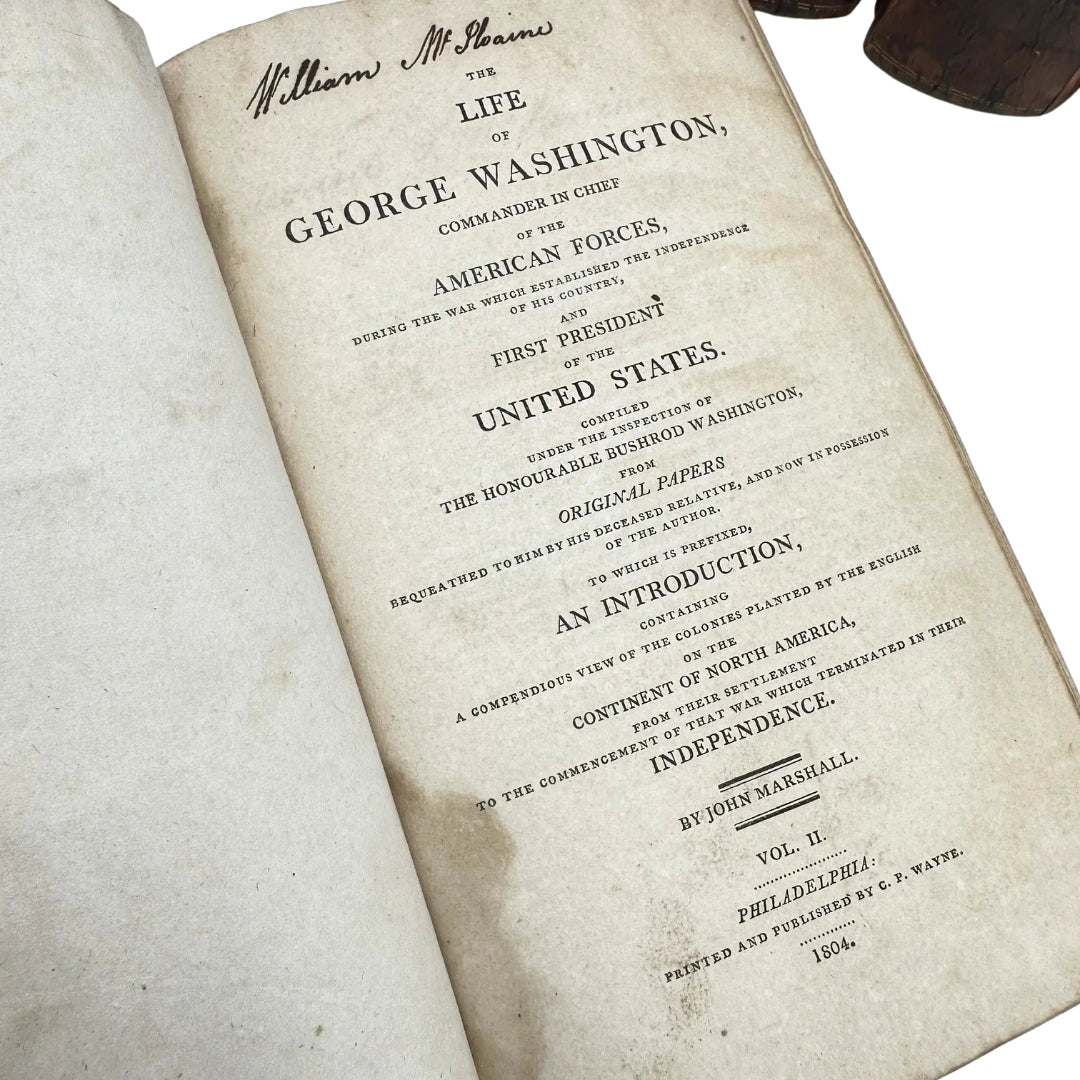 William Mc Ilvaine
THE
LIFE
OF
GEORGE WASHINGTON,
COMMANDER IN CHIEF
OF THE
AMERICAN FORCES,
DURING THE WAR WHICH ESTABLISHED THE INDEPENDENCE
OF HIS COUNTRY,
AND
FIRST PRESIDENT
OF THE
UNITED STATES.
COMPILED
UNDER THE INSPECTION OF
THE HONOURABLE BUSHROD WASHINGTON,
FROM
ORIGINAL PAPERS
BEQUEATHED TO HIM BY HIS DECEASED RELATIVE, AND NOW IN POSSESSION
OF THE AUTHOR.
TO WHICH IS PREFIXED,
AN INTRODUCTION,
CONTAINING
A COMPENDIOUS VIEW OF THE COLONIES PLANTED BY THE ENGLISH
ON THE
CONTINENT OF NORTH AMERICA,
FROM THEIR SETTLEMENT
TO THE COMMENCEMENT OF THAT WAR WHICH TERMINATED IN THEIR
INDEPENDENCE.
BY JOHN MARSHALL.
VOL. II.
PHILADELPHIA:
PRINTED AND PUBLISHED BY C. P. WAYNE.
1804.